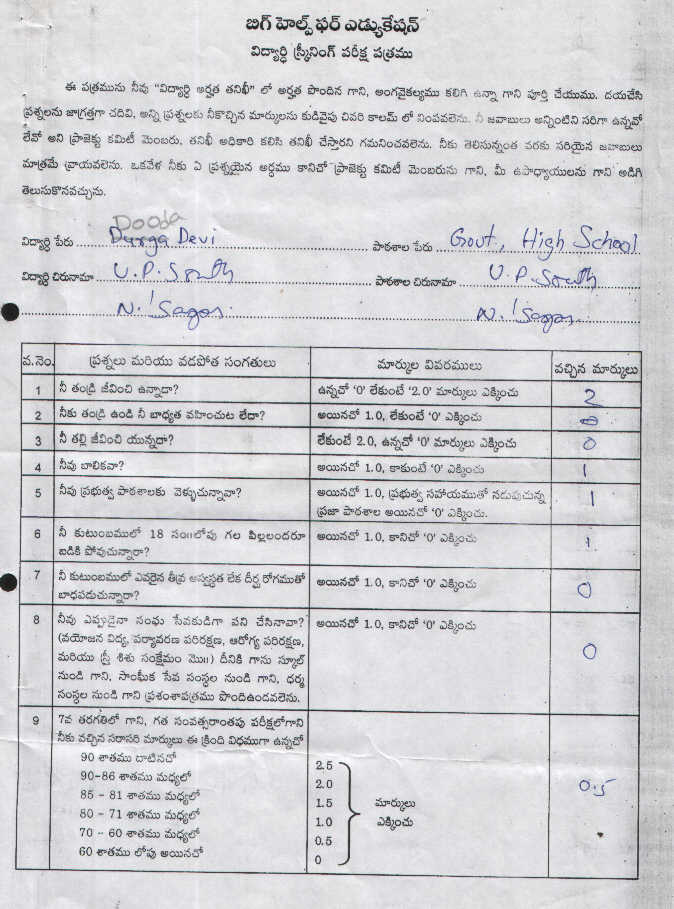 బిగ్ హెల్ప్ ఫర్ ఎడ్యుకేషన్
విద్యార్ధి స్క్రీనింగ్ పరీక్ష పత్రము
ఈ పత్రమును నీవు "విద్యార్ధి అర్హత తనిఖీ" లో అర్హత పొందిన గాని, అంగవైకల్యము కలిగి ఉన్నా గాని పూర్తి చేయుము. దయచేసి
ప్రశ్నలను జాగ్రత్తగా చదివి, అన్ని ప్రశ్నలకు నీకొచ్చిన మార్కులను కుడివైపు చివరి కాలమ్ లో నింపవలెను. నీ జవాబులు అన్నింటిని సరిగా ఉన్నవో
లేవో అని ప్రాజెక్టు కమిటీ మెంబరు, తనిఖీ అధికారి కలిసి తనిఖీ చేస్తారని గమనించవలెను. నీకు తెలిసున్నంత వరకు సరియైన జవాబులు
మాత్రమే వ్రాయవలెను. ఒకవేళ నీకు ఏ ప్రశ్నయైన అర్ధము కానిచో ప్రాజెక్టు కమిటీ మెంబరును గాని, మీ ఉపాధ్యాయులను గాని అడిగి
తెలుసుకొనవచ్చును.
Dooda
విద్యార్ధి పేరు Durga Devi పాఠశాల పేరు Govt., High School
విద్యార్ధి చిరునామా U.P. South పాఠశాల చిరునామా U.P. South
N. 'Sagar. N. 'Sagar.
వ.నెం. ప్రశ్నలు మరియు వడపోత సంగతులు మార్కుల వివరములు వచ్చిన మార్కులు
1 నీ తండ్రి జీవించి ఉన్నాడా? ఉన్నచో '0' లేకుంటే '2.0' మార్కులు ఎక్కించు 2
2 నీకు తండ్రి ఉండి నీ బాధ్యత వహించుట లేదా? అయినచో 1.0, లేకుంటే '0' ఎక్కించు 0
3 నీ తల్లి జీవించి యున్నదా? లేకుంటే 2.0, ఉన్నచో '0' మార్కులు ఎక్కించు 0
4 నీవు బాలికవా? అయినచో 1.0, కాకుంటే '0' ఎక్కించు 1
5 నీవు ప్రభుత్వ పాఠశాలకు వెళ్ళుచున్నావా? అయినచో 1.0, ప్రభుత్వ సహాయముతో నడుపుచున్న 1
ప్రజా పాఠశాల అయినచో '0' ఎక్కించు.
6 నీ కుటుంబములో 18 సం॥లోపు గల పిల్లలందరూ అయినచో 1.0, కానిచో '0' ఎక్కించు 1
బడికి పోవుచున్నారా?
7 నీ కుటుంబములో ఎవరైన తీవ్ర అస్వస్థత లేక దీర్ఘ రోగముతో అయినచో 1.0, కానిచో '0' ఎక్కించు 0
బాధపడుచున్నారా?
8 నీవు ఎప్పుడైనా సంఘ సేవకుడిగా పని చేసినావా? అయినచో 1.0, కానిచో '0' ఎక్కించు 0
(వయోజన విద్య, పర్యావరణ పరిరక్షణ, ఆరోగ్య పరిరక్షణ,
మరియు స్త్రీ శిశు సంక్షేమం మొ॥) దీనికి గాను స్కూల్
నుండి గాని, సాంఘీక సేవ సంస్థల నుండి గాని, ధర్మ
సంస్థల నుండి గాని ప్రశంశాపత్రము పొందిఉండవలెను.
9 7వ తరగతిలో గాని, గత సంవత్సరాంతపు పరీక్షలోగాని
నీకు వచ్చిన సరాసరి మార్కులు ఈ క్రింది విధముగా ఉన్నచో
90 శాతము దాటినచో 2.5
90-86 శాతము మధ్యలో 2.0
85 - 81 శాతము మధ్యలో 1.5 మార్కులు 0.5
80 - 71 శాతము మధ్యలో 1.0 ఎక్కించు
70 - 60 శాతము మధ్యలో 0.5
60 శాతము లోపు అయినచో 0